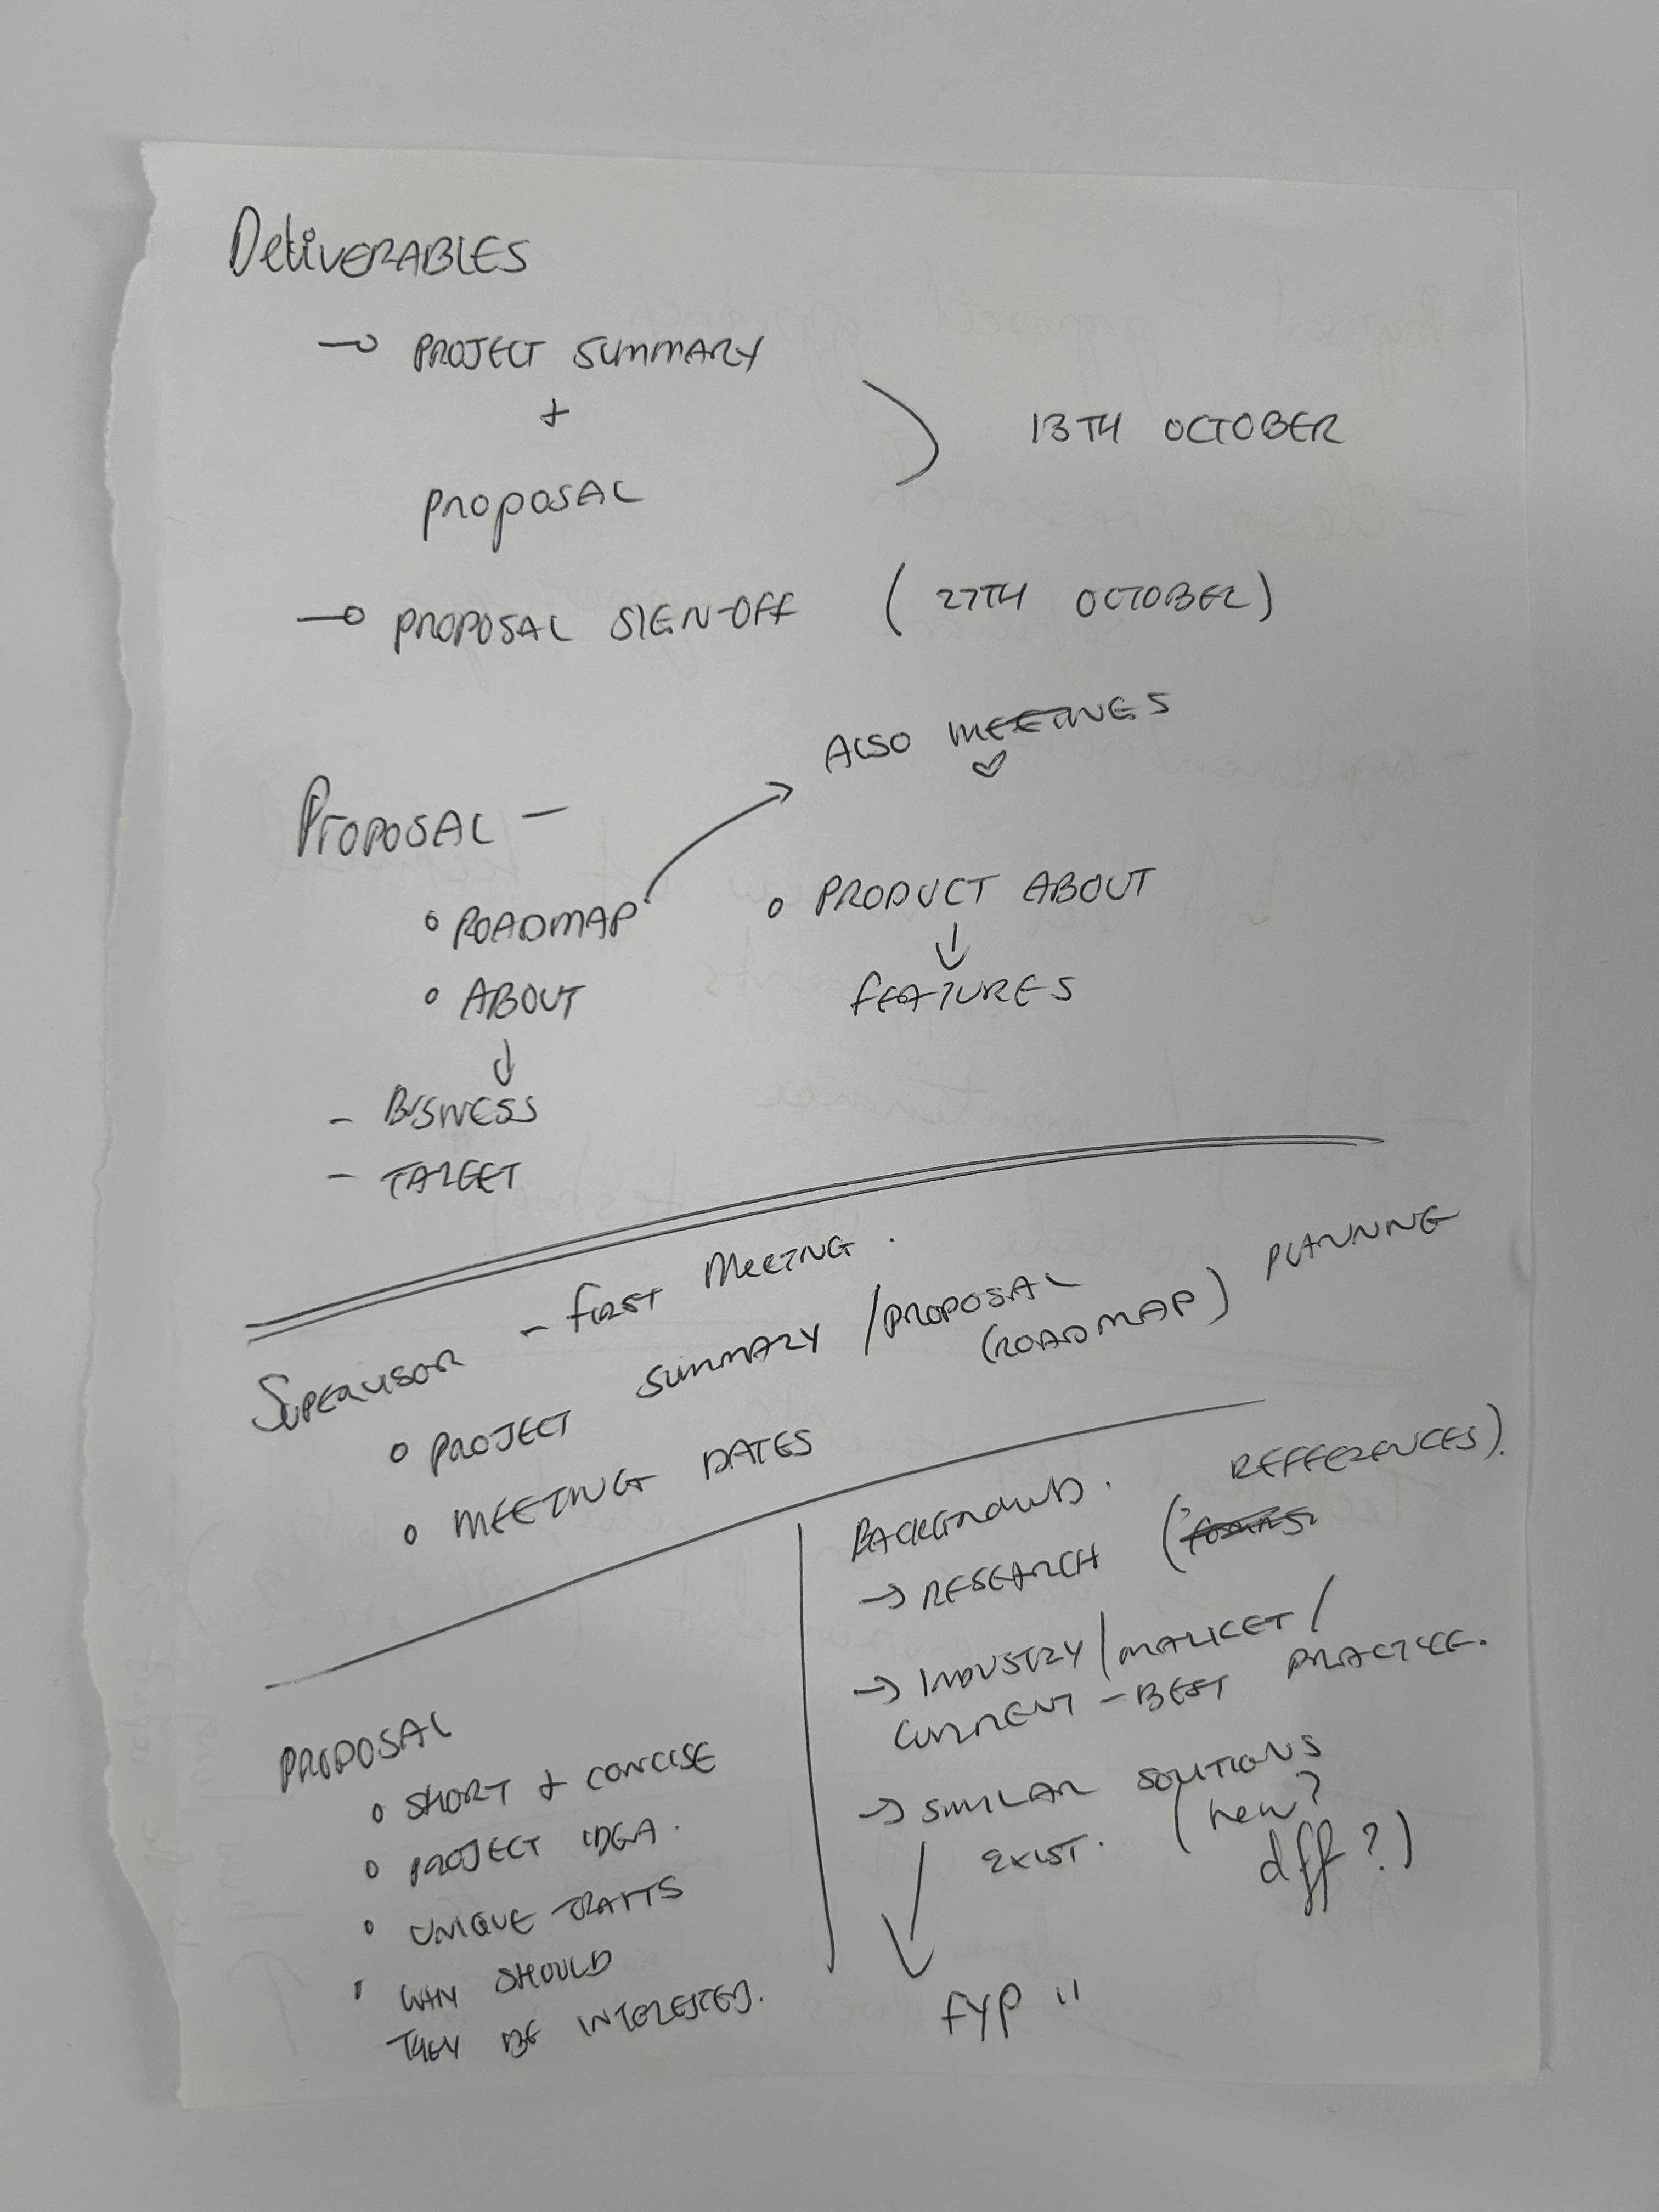 DELIVERABLES
→ PROJECT SUMMARY
+
PROPOSAL
13TH OCTOBER
→ PROPOSAL SIGN-OFF (27TH OCTOBER)
ALSO MEETINGS
PROPOSAL -
◦ ROADMAP
◦ ABOUT
↓
- BISNESS
- TARGET
◦ PRODUCT ABOUT
↓
FEATURES
SUPERVISOR - FIRST MEETING.
◦ PROJECT SUMMARY / PROPOSAL PLANNING
(ROADMAP)
◦ MEETING DATES
PROPOSAL
◦ SHORT + CONCISE
◦ PROJECT IDEA.
◦ UNIQUE TRAITS
◦ WHY SHOULD
THEY BE INTERESTED.
BACKGROUND.
→ RESEARCH ( REFFERENCES).
→ INDUSTRY / MARKET /
CURRENT - BEST PRACTICE.
→ SIMILAR SOLUTIONS
EXIST. (new?
dff?)
FYP !!